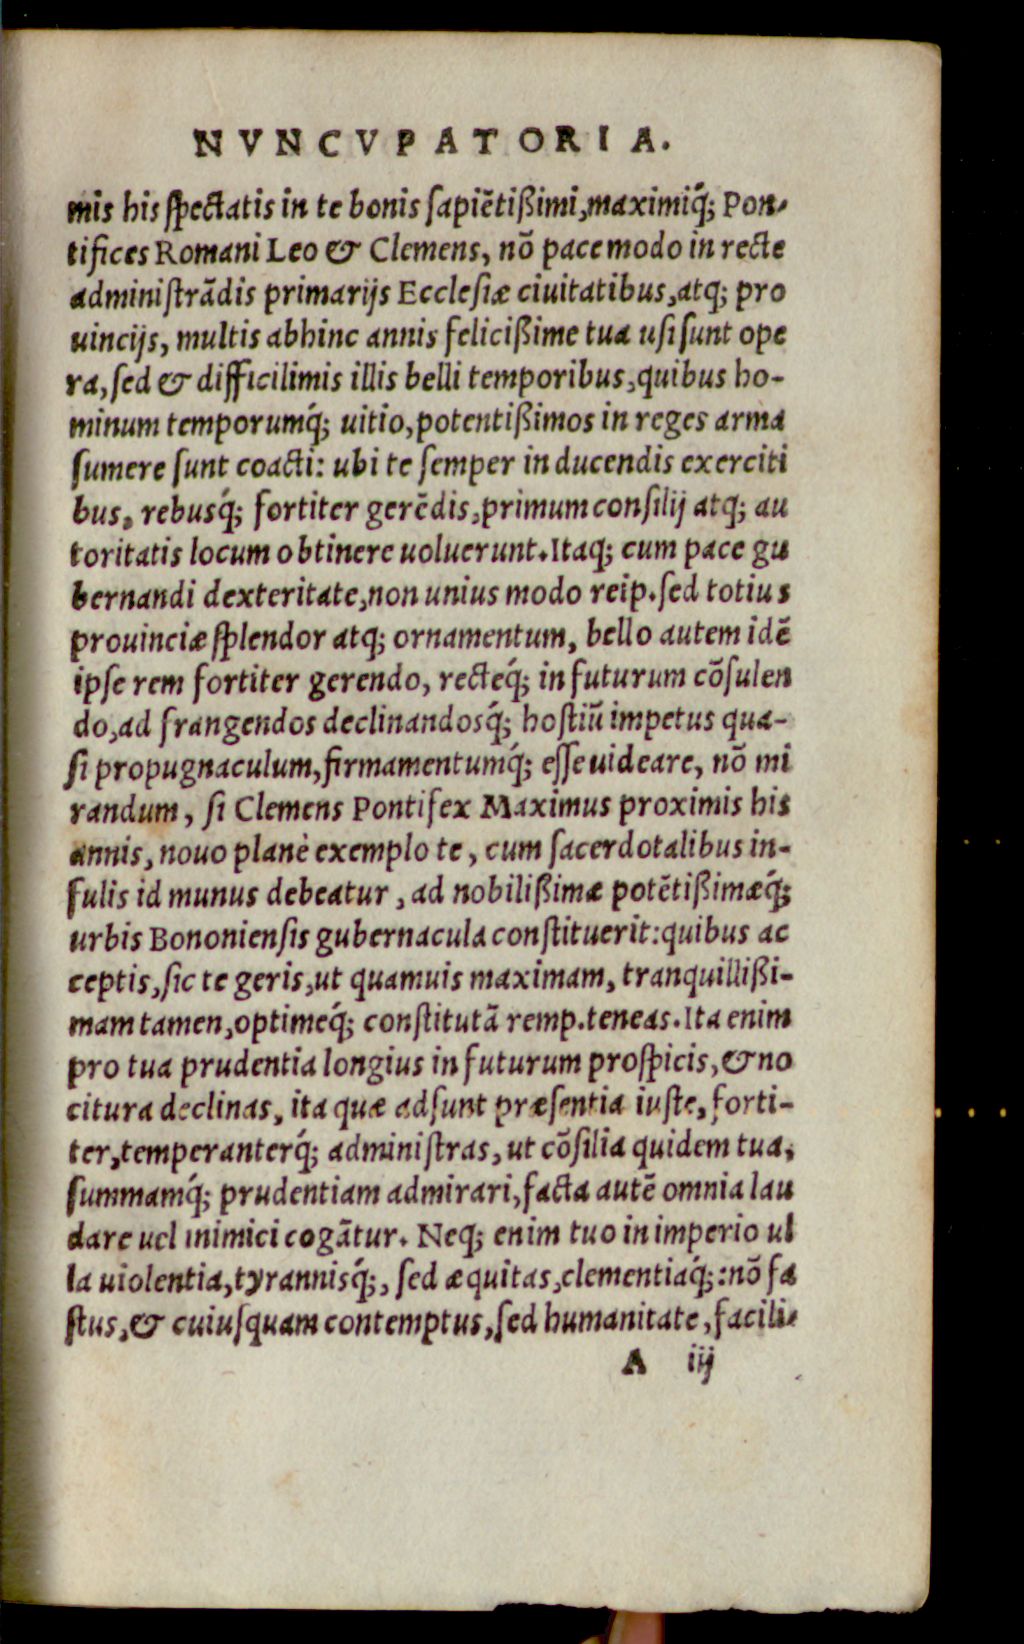 NVNCVPATORIA.
mis his spectatis in te bonis sapiẽtißimi, maximiq́; Pon-
tifices Romani Leo & Clemens, nõ pace modo in recte
administrãdis primarijs Ecclesiæ ciuitatibus, atq; pro
uincijs, multis abhinc annis felicißime tua usi sunt ope
ra, sed & difficilimis illis belli temporibus, quibus ho-
minum temporumq́; uitio, potentißimos in reges arma
sumere sunt coacti: ubi te semper in ducendis exerciti
bus, rebusq́; fortiter gerẽdis, primum consilij atq; au
toritatis locum obtinere uoluerunt. Itaq; cum pace gu
bernandi dexteritate, non unius modo reip. sed totius
prouinciæ splendor atq; ornamentum, bello autem idẽ
ipse rem fortiter gerendo, recteq́; in futurum cõsulen
do, ad frangendos declinandosq́; hostiũ impetus qua-
si propugnaculum, firmamentumq́; esse uideare, nõ mi
randum, si Clemens Pontifex Maximus proximis his
annis, nouo planè exemplo te, cum sacerdotalibus in-
fulis id munus debeatur, ad nobilißimæ potẽtißimæq́;
urbis Bononiensis gubernacula constituerit: quibus ac
ceptis, sic te geris, ut quamuis maximam, tranquillißi-
mam tamen, optimeq́; constitutã remp. teneas. Ita enim
pro tua prudentia longius in futurum prospicis, & no
citura declinas, ita quæ adsunt præsentia iuste, forti-
ter, temperanterq́; administras, ut cõsilia quidem tua,
summamq́; prudentiam admirari, facta autẽ omnia lau
dare uel inimici cogãtur. Neq; enim tuo in imperio ul
la uiolentia, tyrannisq́;, sed æquitas, clementiaq́;: nõ fa
stus, & cuiusquam contemptus, sed humanitate, facili-
A iij